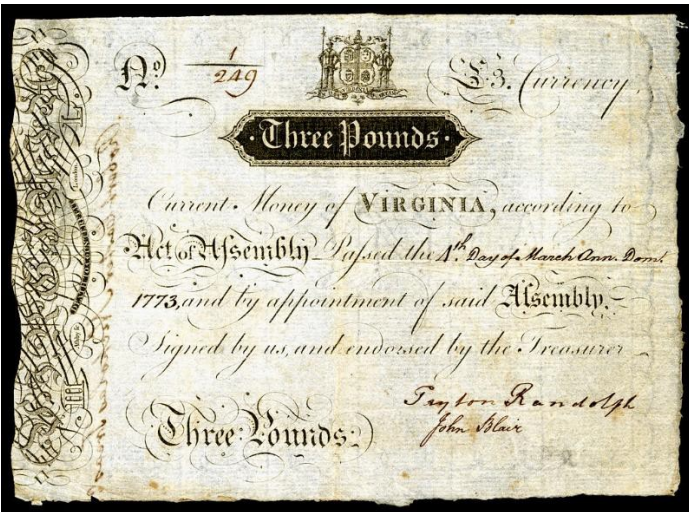 No. 1
249
£3. Currency.
· Three Pounds ·
Current Money of VIRGINIA, according to
Act of Assembly Passed the 4th. Day of March Ann. Dom.
1773, and by appointment of said Assembly.
Signed by us, and endorsed by the Treasurer
Peyton Randolph
John Blair
Three Pounds: